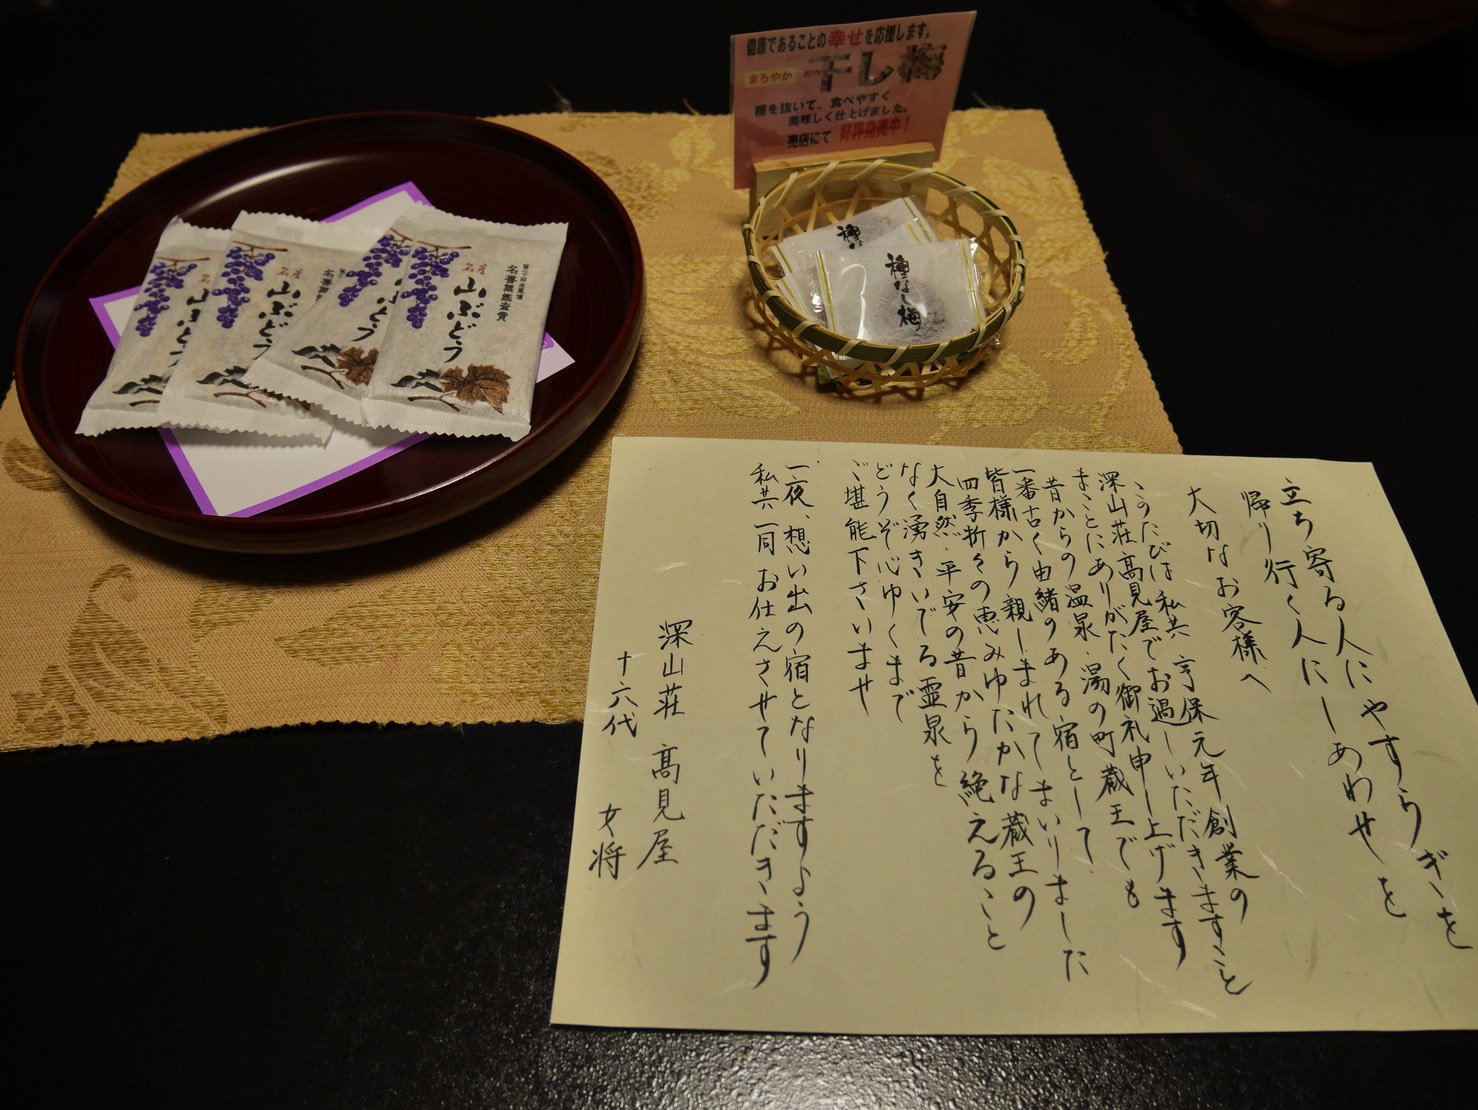 健康であることの幸せを応援します。
まろやか
干し梅
種を抜いて、食べやすく
美味しく仕上げました。
売店にて 好評発売中!
種なし梅
名産
山ぶどう
立ち寄る人にやすらぎを
帰り行く人にしあわせを
大切なお客様へ
このたびは私共 享保元年創業の
深山荘高見屋でお過しいただきますこと
まことにありがたく御礼申し上げます
昔からの温泉湯の町蔵王でも
一番古く由緒のある宿として
皆様から親しまれてまいりました
四季折々の恵みゆたかな蔵王の
大自然 平安の昔から絶えること
なく湧きいでる霊泉を
どうぞ心ゆくまで
ご堪能下さいませ
一夜 想い出の宿となりますよう
私共一同お仕えさせていただきます
深山荘 高見屋
十六代 女将